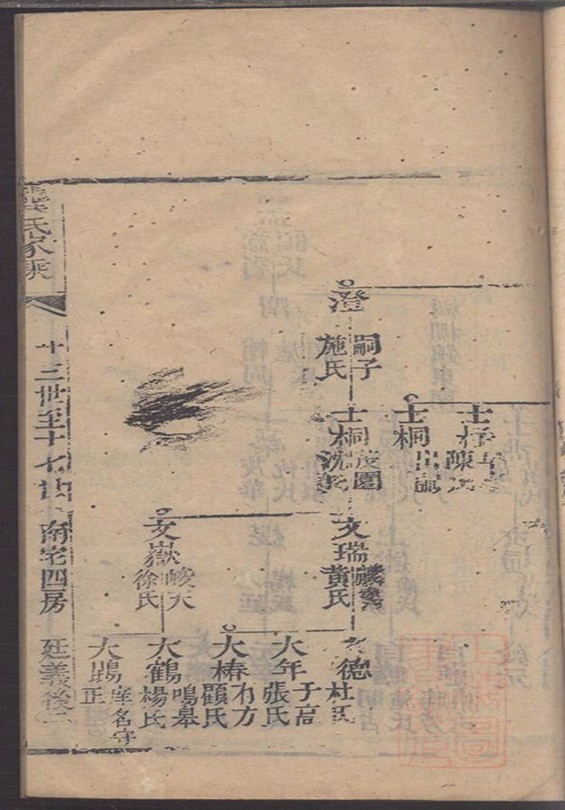 氏家
十三世至十七世
南宅四房
廷義後
澄
嗣子
施氏
士
陳氏
士桐
出嗣
士林
茂園
沈氏
文瑞
黃氏
文嶽
峻天
徐氏
德
杜氏
大年
子高
張氏
大椿
有方
顧氏
大鶴
鳴皋
楊氏
大鵾
庠名守正